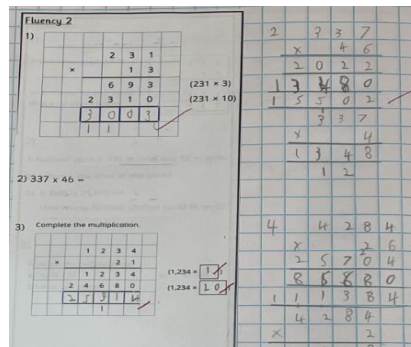 Fluency 2
1)
2 3 1
× 1 3
6 9 3 (231 × 3)
2 3 1 0 (231 × 10)
3 0 0 3
1 1
2) 337 × 46 =
3) Complete the multiplication.
1 2 3 4
× 2 1
1 2 3 4 (1,234 × 1)
2 4 6 8 0 (1,234 × 20)
2 5 9 1 4
1
2 3 3 7
× 4 6
2 0 2 2
1 3 4 8 0
1 5 5 0 2
3 3 7
× 4
1 3 4 8
1 2
4 4 2 8 4
× 2 6
2 5 7 0 4
8 5 6 8 0
1 1 1 3 8 4
4 2 8 4
× 2